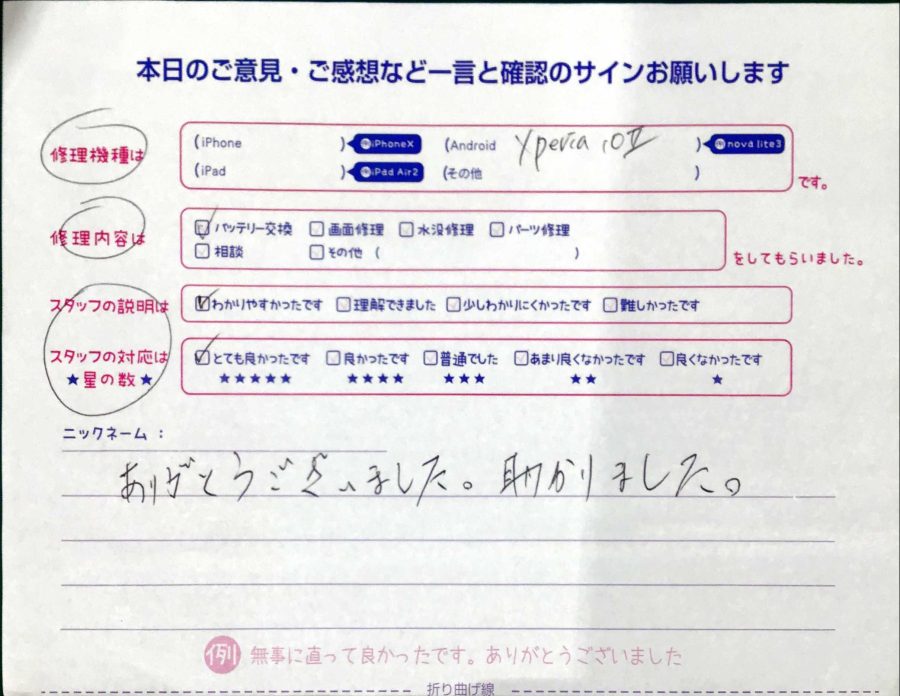 本日のご意見・ご感想など一言と確認のサインお願いします
修理機種は (iPhone )例iPhoneX (Android Xperia 10Ⅱ )例nova lite3
(iPad )例iPad Air2 (その他 ) です。
修理内容は バッテリー交換 画面修理 水没修理 パーツ修理
相談 その他 ( ) をしてもらいました。
スタッフの説明は わかりやすかったです 理解できました 少しわかりにくかったです 難しかったです
スタッフの対応は とても良かったです 良かったです 普通でした あまり良くなかったです 良くなかったです
★星の数★ ★★★★★ ★★★★ ★★★ ★★ ★
ニックネーム：
ありがとうございました。助かりました。
例 無事に直って良かったです。ありがとうございました
折り曲げ線